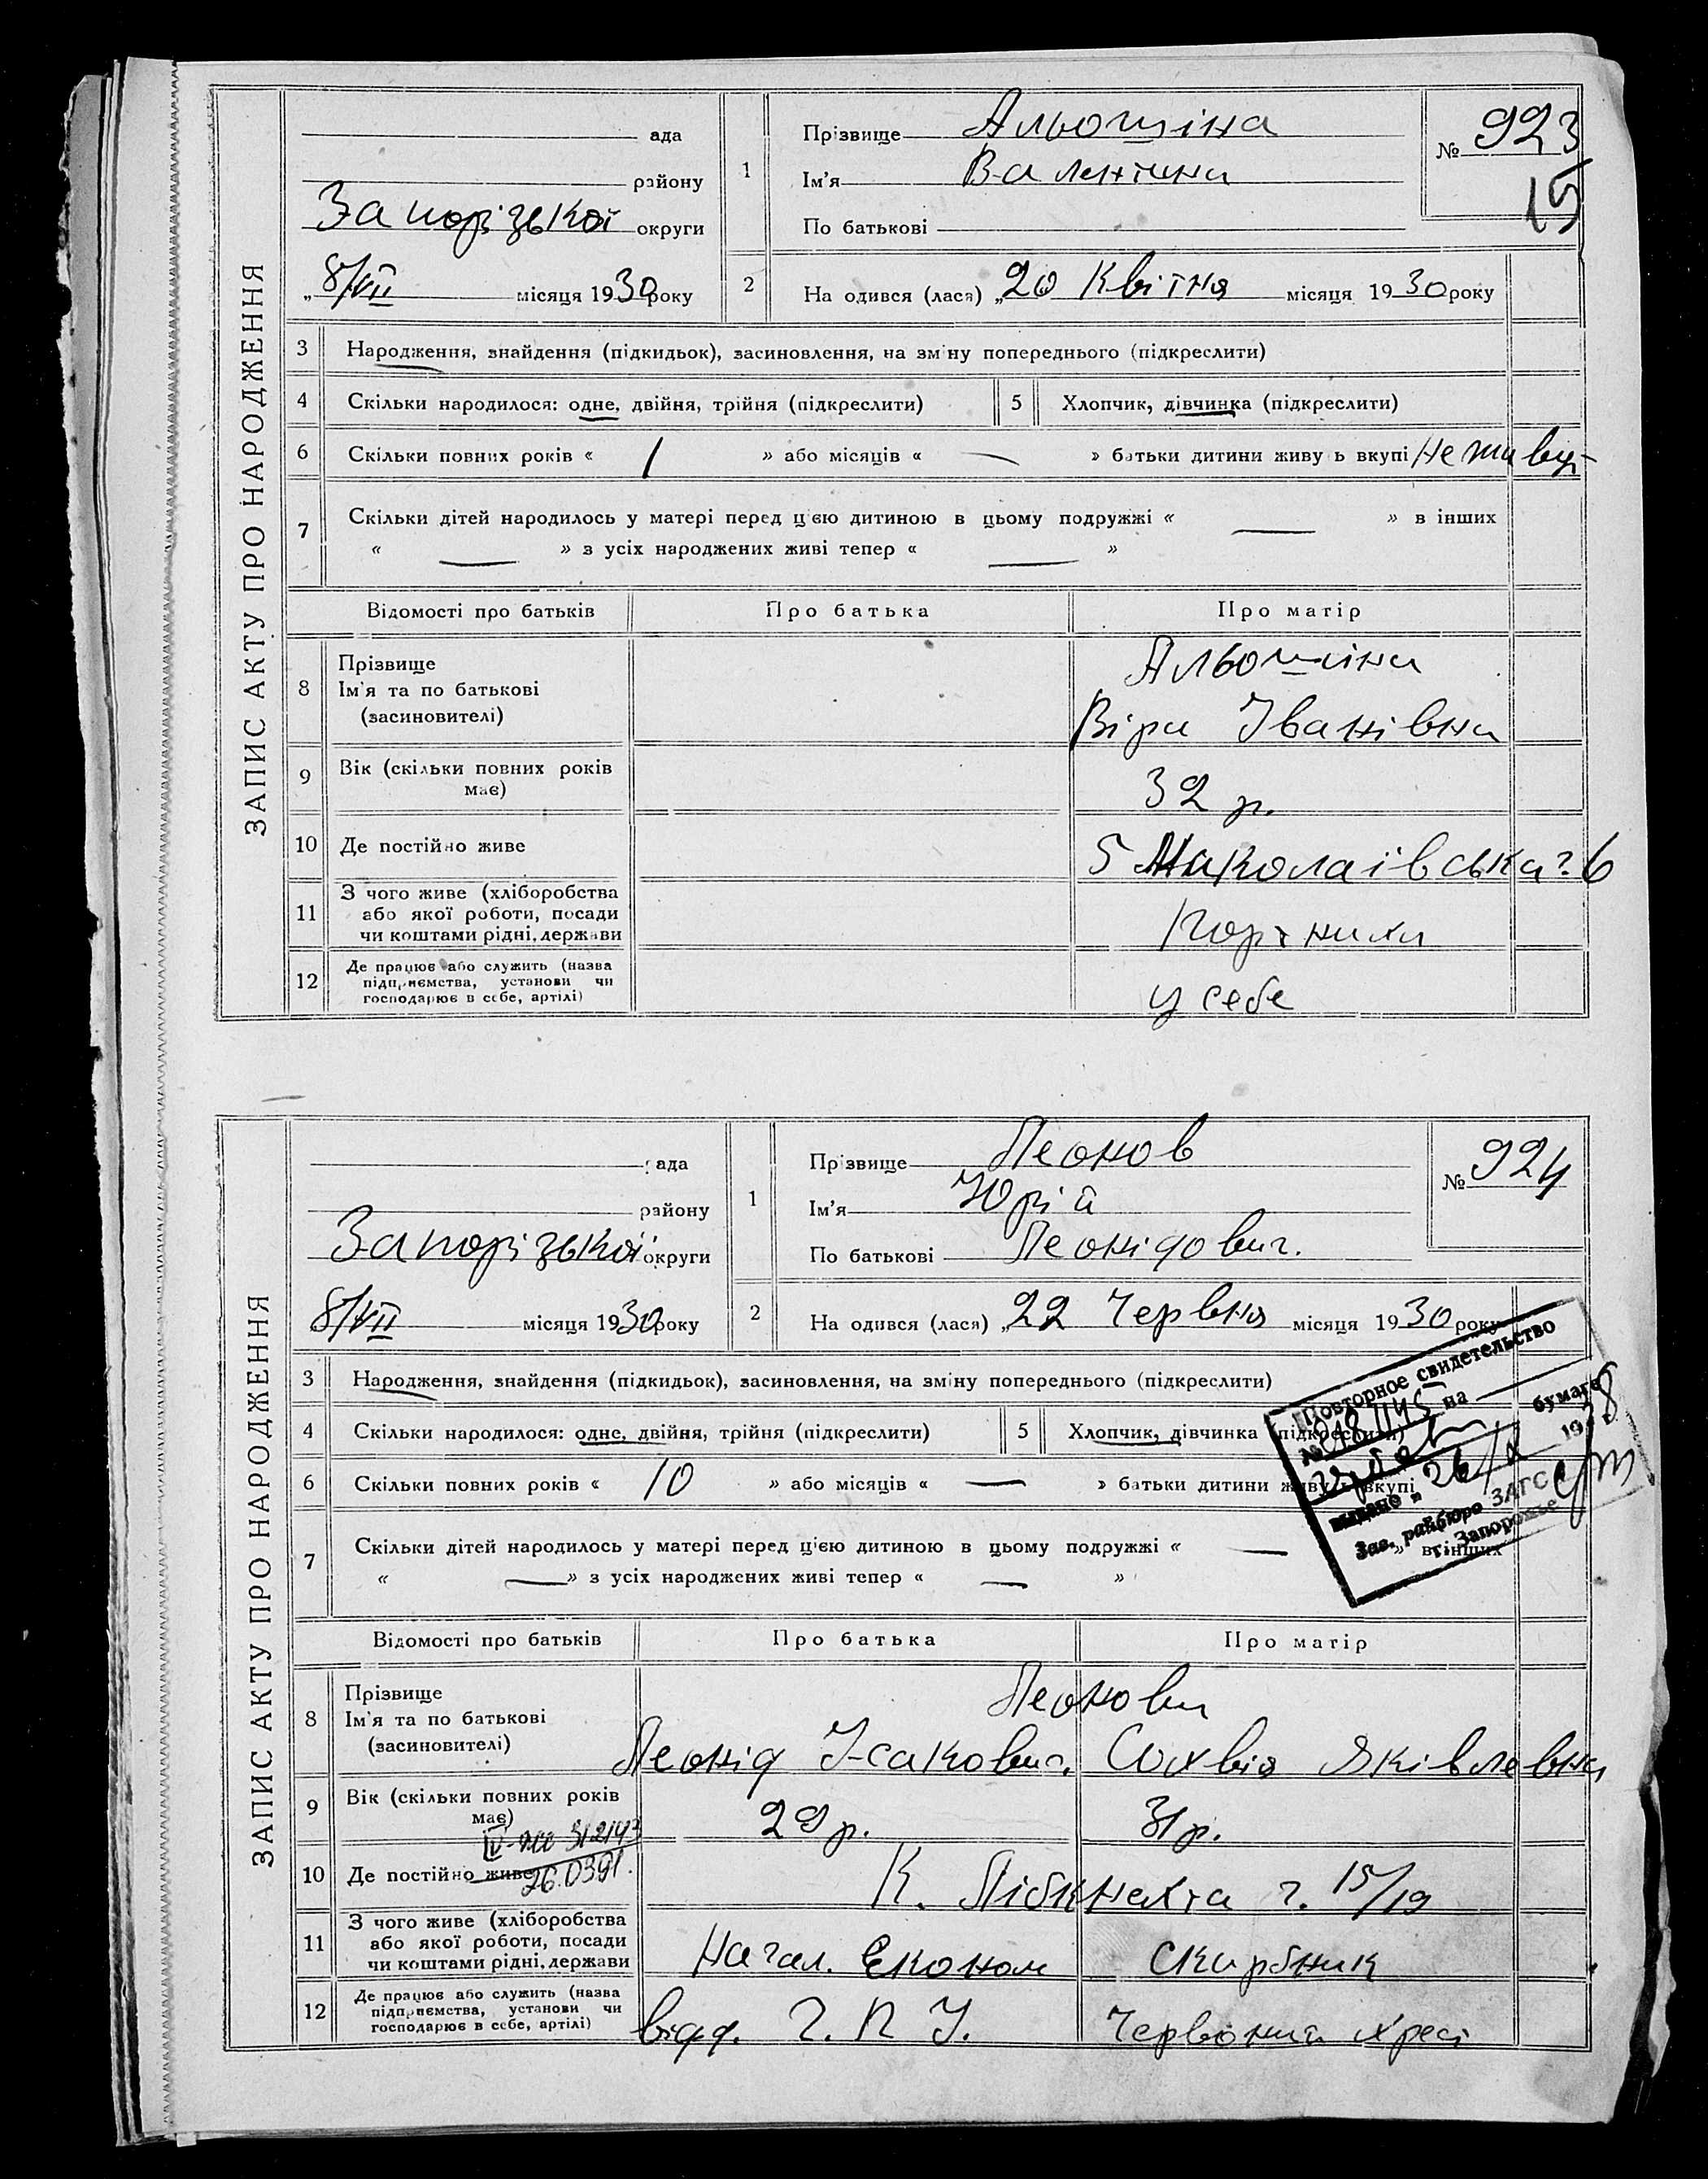 ЗАПИС АКТУ ПРО НАРОДЖЕННЯ
ада
району
Запорізької округи
8/VII місяця 1930 року
1
Прізвище Альошіна
Ім'я Валентина
По батькові
№ 923
15
2
На одився (лася) „20 Квітня місяця 1930 року
3 Народження, знайдення (підкидьок), засиновлення, на зміну попереднього (підкреслити)
4 Скільки народилося: одне, двійня, трійня (підкреслити) 5 Хлопчик, дівчинка (підкреслити)
6 Скільки повних років « 1 » або місяців « — » батьки дитини живу ь вкупі не живуть
7 Скільки дітей народилось у матері перед цією дитиною в цьому подружжі « — » в інших
« — » з усіх народжених живі тепер « — »
Відомості про батьків Про батька Про матір
8 Прізвище
Ім'я та по батькові
(засиновителі)
Альошіна
Віра Іванівна
9 Вік (скільки повних років має)
32 р.
10 Де постійно живе
5 Миколаївська ч. 6
11 З чого живе (хліборобства
або якої роботи, посади
чи коштами рідні, держави
12 Де працює або служить (назва
підприємства, установи чи
господарює в себе, артілі)
у себе
ЗАПИС АКТУ ПРО НАРОДЖЕННЯ
ада
району
Запорізької округи
8/VII місяця 1930 року
1
Прізвище Леонов
Ім'я Юрій
По батькові Леонідович.
№ 924
2
На одився (лася) „22 Червня місяця 1930 року
3 Народження, знайдення (підкидьок), засиновлення, на зміну попереднього (підкреслити)
4 Скільки народилося: одне, двійня, трійня (підкреслити) 5 Хлопчик, дівчинка (підкреслити)
6 Скільки повних років « 10 » або місяців « — » батьки дитини живу ь вкупі
7 Скільки дітей народилось у матері перед цією дитиною в цьому подружжі « — » в інших
« — » з усіх народжених живі тепер « — »
Повторное свидетельство
на бумаге
выдано „ 26/X 19 8 г.
Зав. райбюро ЗАГС
г. Запорожье
Відомості про батьків Про батька Про матір
8 Прізвище
Ім'я та по батькові
(засиновителі)
Леонови
Леонід Ісакович. Сохвія Яківлевна
9 Вік (скільки повних років має)
29 р. 31 р.
26.03.91.
10 Де постійно живе
К. Лібкнехта ч. 15/19
11 З чого живе (хліборобства
або якої роботи, посади
чи коштами рідні, держави
Начал. Економ скарбник
12 Де працює або служить (назва
підприємства, установи чи
господарює в себе, артілі)
відд. Г. П У. Червоний хрест